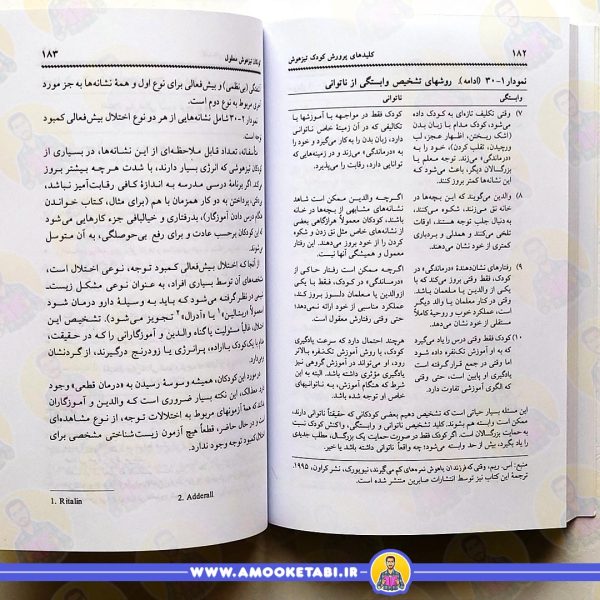 ۱۸۲
کلیدهای پرورش کودک تیزهوش
نمودار ۱-۳۰ (ادامه). روشهای تشخیص وابستگی از ناتوانی
وابستگی
ناتوانی
۷) وقتی تکلیف تازه‌ای به کودک داده
می‌شود، کودک مدام با زبان بدن
(اشک ریختن، اظهار عجز، لب
ورچیدن، تقلب کردن)، خود را به
«درماندگی» می‌زند. توجه معلم یا
بزرگسالان دیگر، باعث می‌شود که
این نشانه‌ها کمتر بروز کنند.
کودک فقط در مواجهه با آموزشها یا
تکالیفی که در آن زمینهٔ خاص ناتوانی
دارد، زبان بدن را به کار می‌گیرد و خود را
به «درماندگی» می‌زند و در زمینه‌هایی که
توانایی دارد، رقابت را می‌پذیرد.
۸) والدین می‌گویند که این بچه‌ها در
خانه نق می‌زنند، شکوه می‌کنند،
به دنبال جلب توجه هستند، اوقات
تلخی می‌کنند و همدلی و بردباری
کمتری از خود نشان می‌دهند.
اگرچه والدین ممکن است شاهد
نشانه‌های مشابهی از بچه‌ها در خانه
باشند، کودکان معمولاً هرازگاهی بعضی
از نشانه‌های خاص مثل نق زدن و شکوه
کردن را از خود بروز می‌دهند. این رفتار
معمول و همیشگی آنها نیست.
۹) رفتارهای نشان‌دهندهٔ «درماندگی» در
کودک، فقط وقتی بروز می‌کند که با
یکی از والدین یا معلمان باشد.
وقتی در کنار معلمان یا والد دیگر
است، عملکرد خوب و روحیهٔ
مستقلی از خود نشان می‌دهد.
اگرچه ممکن است رفتار حاکی از
«درماندگی» در کودک، فقط با یکی
ازوالدین یا معلمان دلسوز بروز کند،
عملکرد مناسبی از خود ارائه نمی‌دهد؛
حتی وقتی رفتارش معقول است.
۱۰) کودک فقط وقتی درس را یاد می‌گیرد
که به او آموزش تک‌نفره داده شود
اما وقتی در جمع قرار گرفته است
یادگیری او پایین است، حتی وقتی
که الگوی آموزشی تفاوت دارد.
هرچند احتمال دارد که سرعت یادگیری
کودک، با روش آموزش تک‌نفره بالاتر
رود، می‌تواند در آموزش گروهی نیز
یادگیری مؤثری داشته باشد. البته به این
شرط که هنگام آموزش، به ناتوانیهای
خاص او توجه شده باشد.
این مسئله بسیار حیاتی است که تشخیص دهیم بعضی کودکانی که حقیقتاً ناتوانی دارند،
ممکن است وابسته هم بشوند. کلید تشخیص ناتوانی و وابستگی، واکنش کودک نسبت
به حمایت بزرگسالان است. اگر کودک فقط در صورت حمایت یک بزرگسال، مطلب جدیدی
را یاد بگیرد، بیش از حد وابسته می‌شود؛ چه واقعاً ناتوانی داشته باشد یا خیر.
منبع: اس. ریم، وقتی که فرزندان باهوش نمره‌های کم می‌گیرند، نیویورک، نشر کراون، ۱۹۹۵.
ترجمهٔ این کتاب نیز توسط انتشارات صابرین منتشر شده است.
کودکان تیزهوش معلول
۱۸۳
(بی‌نظمی) و بیش‌فعالی برای نوع اول و همهٔ نشانه‌ها به جز مورد
مربوط به نوع دوم است.
نمودار ۲-۳۰شامل نشانه‌هایی از هر دو نوع اختلال بیش‌فعالی کمبود
توجه است.
متأسفانه، تعداد قابل ملاحظه‌ای از این نشانه‌ها، در بسیاری از
کودکان تیزهوش که انرژی بسیار دارند، با شدت هر چه بیشتر بروز
کند. اگر برنامهٔ درسی مدرسه به اندازهٔ کافی رقابت‌آمیز نباشد،
پرداختن به دو کار همزمان با هم (برای مثال، کتاب خواندن
هنگام درس دادن آموزگار)، بدرفتاری و خیالبافی جزء کارهایی می‌شود
که این کودکان برحسب عادت و برای رفع بی‌حوصلگی، به آن متوسل
می‌شوند.
از آنجا که اختلال بیش‌فعالی کمبود توجه، نوعی اختلال است،
نشانه‌های آن توسط بسیاری افراد، به عنوان نوعی مشکل زیست‌
در نظر گرفته می‌شود که باید به وسیلهٔ دارو درمان شود
(معمولاً «ریتالین»۱ یا «آدرال»۲ تجویز می‌شود). تشخیص این
اختلال، غالباً مسئولیت والدین و آموزگارانی را که در حقیقت،
با یک کودک بااراده، پرانرژی یا زودرنج درگیرند، از گردنشان
برمی‌دارد.
در مورد این کودکان، همیشه وسوسهٔ رسیدن به «درمان قطعی» وجود
دارد. این نکته بسیار ضروری است که والدین و آموزگاران
که همهٔ آزمونهای مربوط به اختلالات توجه، از نوع مشاهده‌ای
است و در حال حاضر، قطعاً هیچ آزمون زیست‌شناختی مشخصی برای
اختلال کمبود توجه وجود ندارد.
1. Ritalin 2. Adderall
WWW.AMOOKETABI.IR